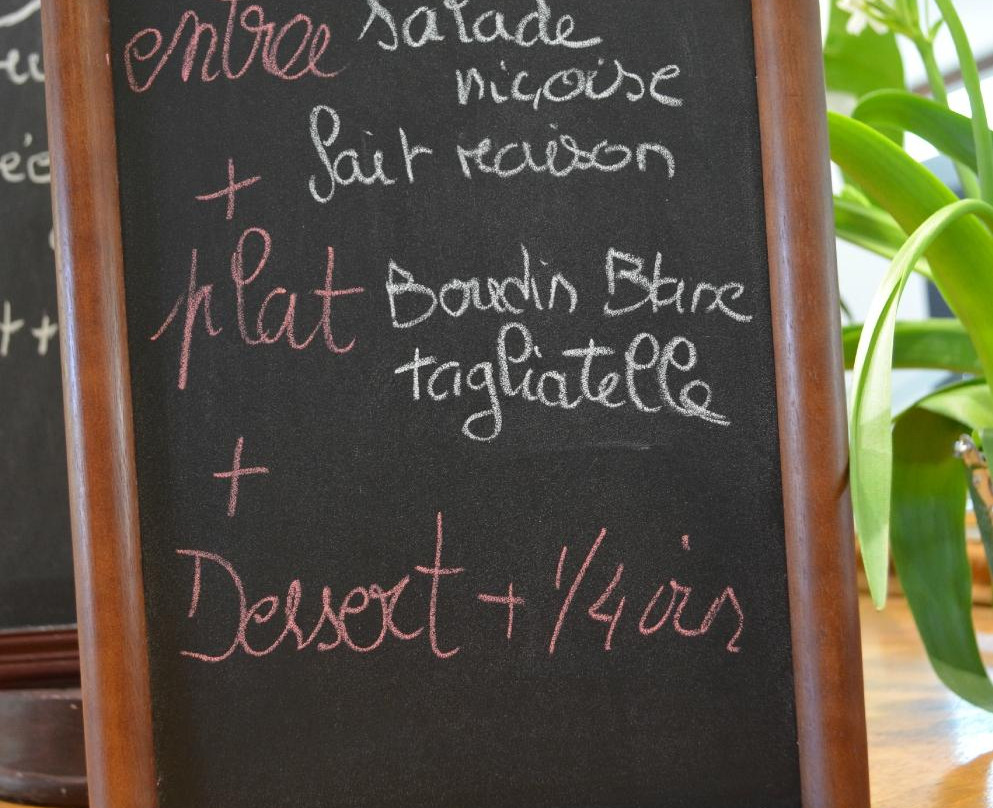 entrée salade
niçoise
fait maison
+
plat Boudin Blanc
tagliatelle
+
Dessert + 1/4 vin